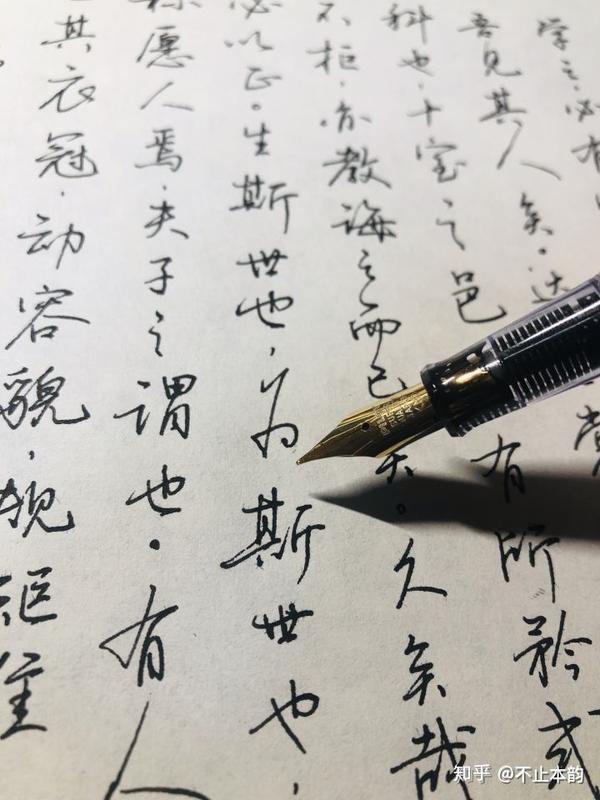 学之,必有
吾见其人矣。达
科也,十室之邑 有所矜式
不拒,亦教诲之而已矣。久矣哉
必以正。生斯世也,为斯世也,
称愿人焉,夫子之谓也。有人
其衣冠,动容貌,
知乎 @不止本韵